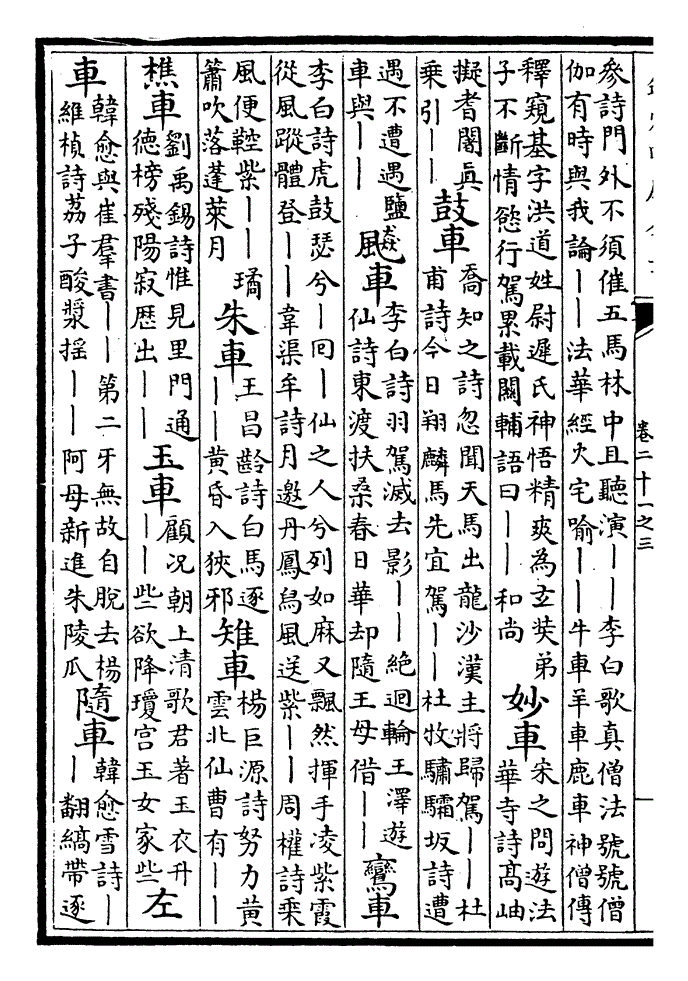 參詩門外不須催五馬林中且聽演——李白歌真僧法號號僧
伽有時與我論——法華經火宅喻——牛車羊車鹿車神僧傳
釋窺基字洪道姓尉遲氏神悟精爽為玄奘弟
子不斷情慾行駕累載關輔語曰——和尚
妙車
宋之問遊法
華寺詩髙岫
擬耆闍真
乗引——
鼓車
喬知之詩忽聞天馬出龍沙漢主將歸駕——杜
甫詩今日翔麟馬先宜駕——杜牧驌驦坂詩遭
遇不遭遇鹽
車與——
飈車
李白詩羽駕滅去影——絶迴輪王澤遊
仙詩東渡扶桑春日華却隨王母借——
鸞車
李白詩虎鼓瑟兮—回—仙之人兮列如麻又飄然揮手凌紫霞
從風蹤體登——韋渠牟詩月邀丹鳳舄風送紫——周權詩乗
風便鞚紫——璚
簫吹落蓬萊月
朱車
王昌齡詩白馬逐
——黄昏入狹邪
雉車
楊巨源詩努力黄
雲北仙曹有——
樵車
劉禹錫詩惟見里門通
德榜殘陽寂歴出——
玉車
顧况朝上清歌君著玉衣升
——些欲降瓊宫玉女家些
左
車
韓愈與崔羣書——第二牙無故自脫去楊
維楨詩荔子酸漿揺——阿母新進朱陵瓜
隨車
韓愈雪詩—
—翻縞帶逐
卷二十一之三